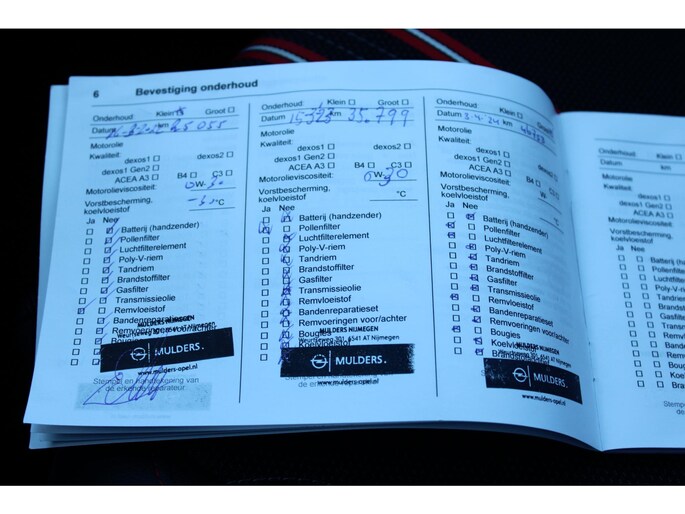 6 Bevestiging onderhoud
Onderhoud: Klein Groot
Datum km 25055
Motorolie
Kwaliteit:
dexos1 dexos2
dexos1 Gen2
ACEA A3 B4 C3
Motorolieviscositeit: 0W-30
Vorstbescherming,
koelvloeistof °C
Ja Nee
Batterij (handzender)
Pollenfilter
Luchtfilterelement
Poly-V-riem
Tandriem
Brandstoffilter
Gasfilter
Transmissieolie
Remvloeistof
Bandenreparatieset
Remvoeringen voor/achter
Bougies
MULDERS NIJMEGEN
6541 AT Nijmegen
MULDERS.
www.mulders-opel.nl
Stempel en handtekening van
de erkende reparateur
Onderhoud: Klein Groot
Datum 15323 km 35.799
Motorolie
Kwaliteit:
dexos1 dexos2
dexos1 Gen2
ACEA A3 B4 C3
Motorolieviscositeit: 0W-30
Vorstbescherming,
koelvloeistof °C
Ja Nee
Batterij (handzender)
Pollenfilter
Luchtfilterelement
Poly-V-riem
Tandriem
Brandstoffilter
Gasfilter
Transmissieolie
Remvloeistof
Bandenreparatieset
Remvoeringen voor/achter
Bougies
MULDERS NIJMEGEN
301, 6541 AT Nijmegen
MULDERS.
www.mulders-opel.nl
Onderhoud: Klein Groot
Datum 3-4-24 km
Motorolie
Kwaliteit:
dexos1
dexos1 Gen2
ACEA A3 B4 C3
Motorolieviscositeit:
Vorstbescherming,
koelvloeistof °C
Ja Nee
Batterij (handzender)
Pollenfilter
Luchtfilterelement
Poly-V-riem
Tandriem
Brandstoffilter
Gasfilter
Transmissieolie
Remvloeistof
Bandenreparatieset
Remvoeringen voor/achter
Bougies
Koelvloeistof
MULDERS NIJMEGEN
301, 6541 AT Nijmegen
MULDERS.
www.mulders-opel.nl
Onderhoud:
Datum km
Motorolie
Kwaliteit:
dexos1
dexos1 Gen2
ACEA A3
Motorolieviscositeit
Vorstbescherming,
koelvloeistof
Ja Nee
Batterij (ha
Pollenfilter
Luchtfiltere
Poly-V-rie
Tandriem
Brandstof
Gasfilter
Transmis
Remvloei
Bandenre
Remvoer
Bougies
Koelvloe
Stempel en
de erken